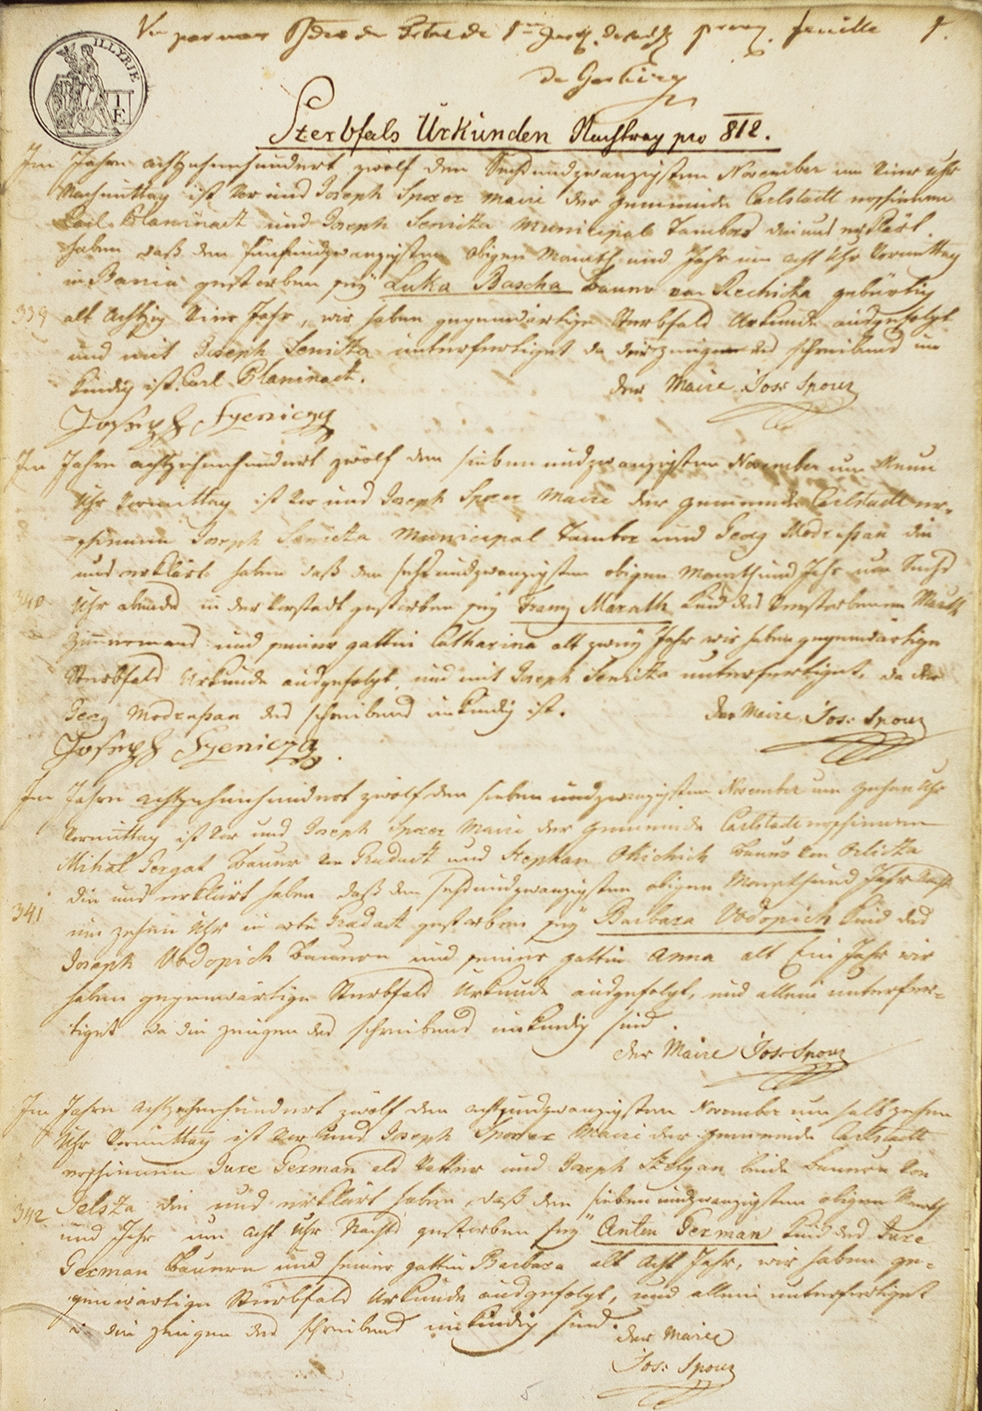 Vu par nous feuille 1.
ILLYRIE
de Goricza
1 F
Sterbfals Urkunden Nachtrag pro 812.
Im Jahre achtzehnhundert zwölf den Sechsundzwanzigsten November um Uhr
Nachmittag ist Vor uns Joseph Sporer Maire der Gemeinde Carlstadt erschienen
Carl Planinack und Joseph Senitza Municipal Tambor die uns erklärt
haben daß den fünfundzwanzigsten obigen Monath und Jahr um acht Uhr Vormittag
in Bania gestorben sey Luka Bascha Bauer von Rechitza gebürtig
339 alt Achtzig Jahr, wir haben gegenwärtige Sterbfals Urkunde ausgefolgt
und mit Joseph Senitza unterfertiget da der des schreibens un
kundig ist. Carl Planinack. der Maire Jos: Sporer
Joseph Szenicza
Im Jahre achtzehnhundert zwölf den siebenundzwanzigsten November um Neun
Uhr Vormittag ist Vor uns Joseph Sporer Maire der Gemeinde Carlstadt er-
schienen Joseph Senitza Municipal Tambor und Georg Modrussan die
uns erklärt haben daß den sechsundzwanzigsten obigen Monath und Jahr um Sechs
340 Uhr abends in der Vorstadt gestorben sey Franz Marath Kind des Verstorbenen
Zimmermans und seiner gattin Catharina alt zwey Jahr wir haben gegenwärtige
Sterbfals Urkunde ausgefolgt und mit Joseph Senitza unterfertiget, da der
Georg Modrussan des schreibens unkundig ist. der Maire Jos: Sporer
Joseph Szenicza.
Im Jahre achtzehnhundert zwölf den siebenundzwanzigsten November um zehen Uhr
Vormittag ist Vor uns Joseph Sporer Maire der Gemeinde Carlstadt erschienen
Mihal Gergat Bauer von Gradack und Stephan Ohichich Bauer von Orlicka
die uns erklärt haben daß den sechsundzwanzigsten obigen Monath und Jahr
341 um zehen Uhr in orte Gradack gestorben sey Barbara Vodopich Kind des
Joseph Vodopich Bauern und seiner gattin Anna alt Ein Jahr wir
haben gegenwärtige Sterbfals Urkunde ausgefolgt, und allein unterfer-
tiget da die zeugen des schreibens unkundig sind.
der Maire Jos: Sporer
Im Jahre achtzehnhundert zwölf den achtundzwanzigsten November um halb zehen
Uhr Vormittag ist Vor uns Joseph Sporer Maire der Gemeinde Carlstadt
erschienen Jure German als Vatter und Joseph Stolyan beide Bauern von
342 Jelsza die uns erklärt haben daß den siebenundzwanzigsten obigen Monath
und Jahr um acht Uhr Nachts gestorben sey Anton German Kind des Jure
German Bauern und seiner gattin Barbara alt Acht Jahr, wir haben ge-
genwärtige Sterbfals Urkunde ausgefolgt, und allein unterfertiget
da die zeugen des schreibens unkundig sind. der Maire
Jos: Sporer